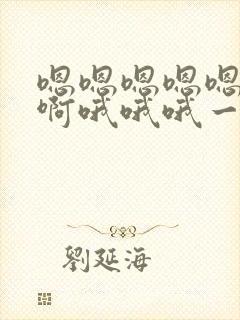 嗯嗯嗯嗯嗯
啊哦哦哦一
劉延海